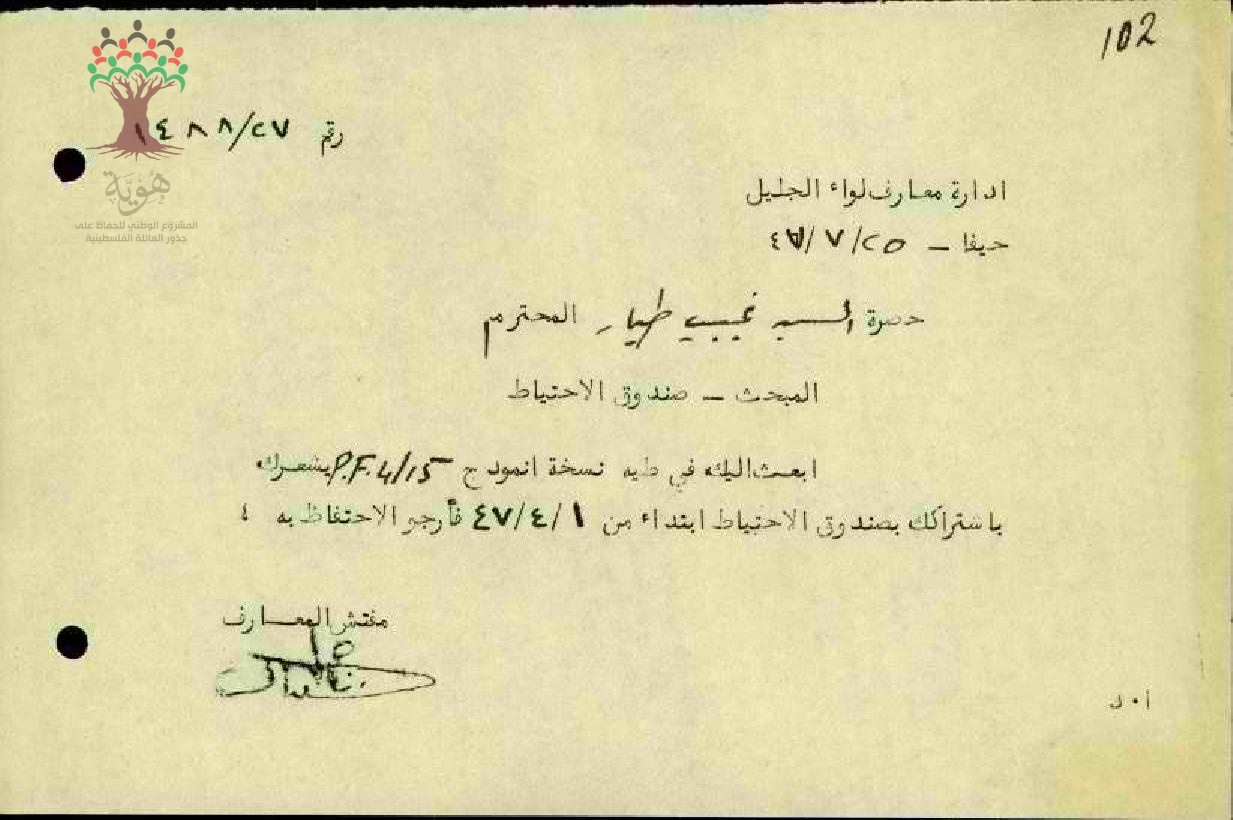 102
رقم ١٤٨٨/٢٧
هُوِيَّة
المشروع الوطني للحفاظ على
جذور العائلة الفلسطينية
ادارة معارف لواء الجليل
حيفا – ٤٧/٧/٢٥
حضرة السيد نجيب طيار المحترم
المبحث – صندوق الاحتياط
ابعث اليك في طيه نسخة انموذج P.F.4/15 يشعرك
باشتراكك بصندوق الاحتياط ابتداء من ٤٧/٤/١ فأرجو الاحتفاظ به ؛
مفتش المعارف
أ٠ل